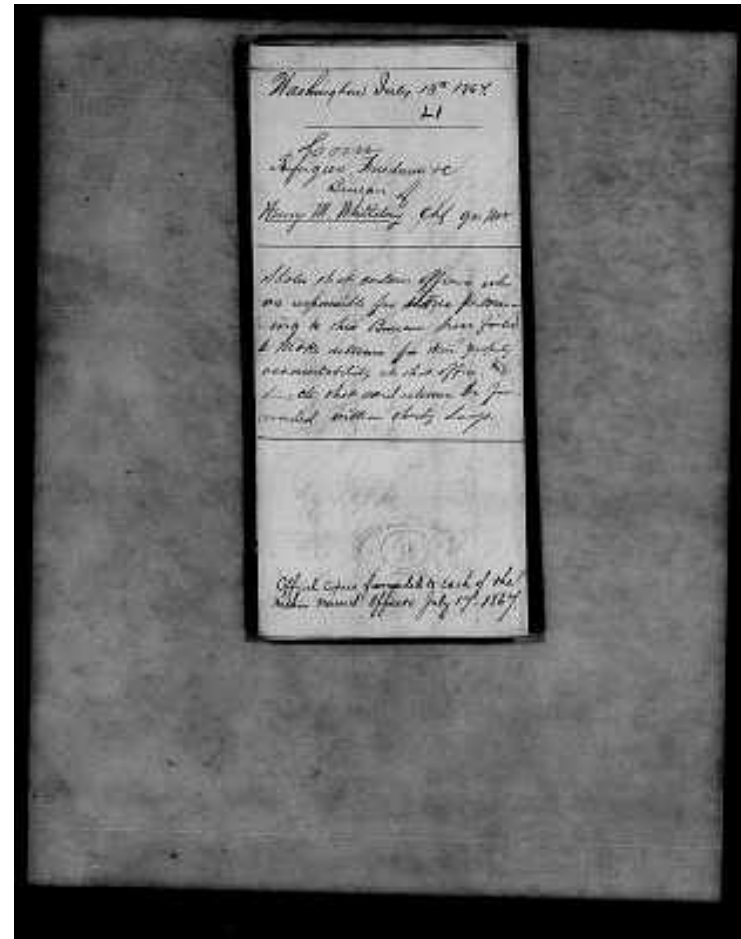 Washington July 13th 1867.
L1
From
Refugees Freedmen &c
Bureau of
Henry M. Whittelsey Chf Qr Mr
States that certain officers who
are responsible for stores pertain-
ing to this Bureau have failed
to make returns for their property
accountability to that office &
that said returns be for-
warded within thirty days.
Official copies furnished to each of the
within named Officers July 17. 1867